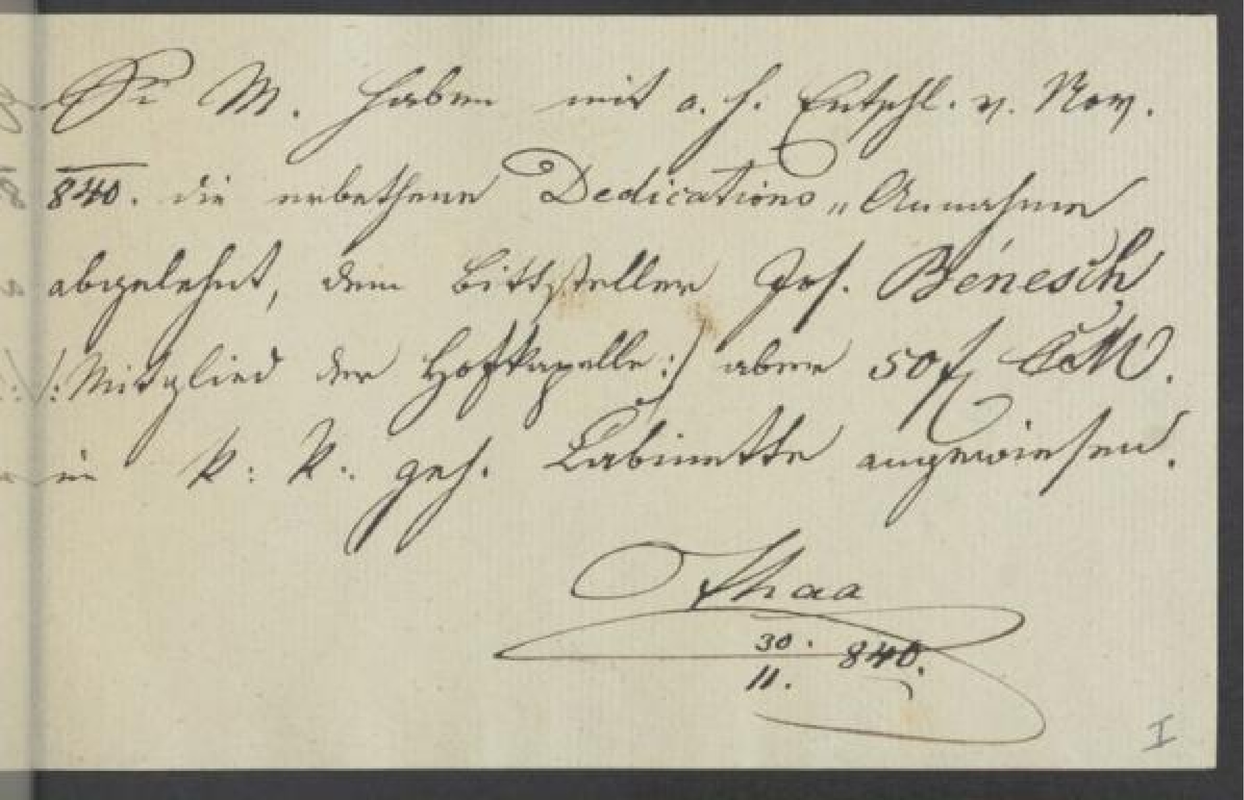 Se M. haben mit a. h. Entschl. v. Nov.
840. die erbethene Dedications„Annahme
abgelehnt, dem Bittsteller Jos. Bénesch
/: Mitglied der Hofkapelle :/ aber 50 f CM.
im k: k: geh. Cabinette angewiesen.
Thaa
30. 840.
11.
I